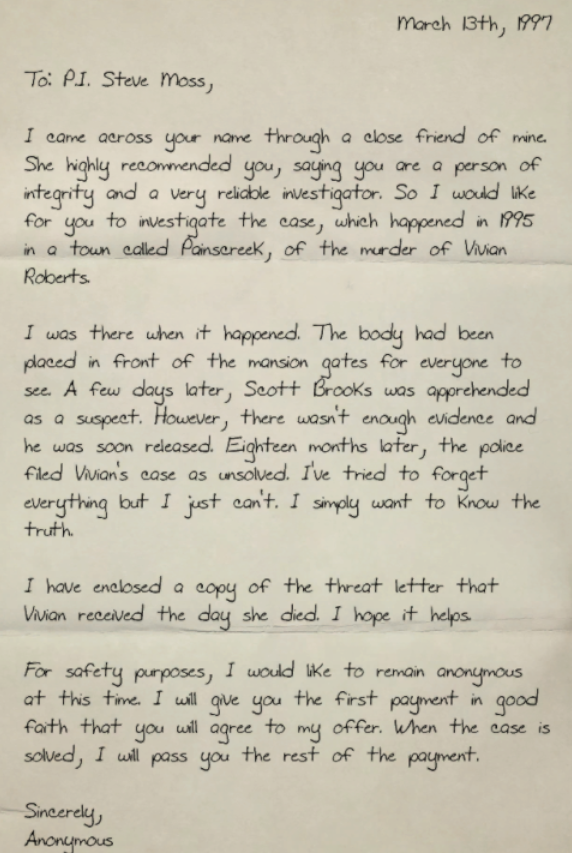 March 13th, 1997
To: P.I. Steve Moss,
I came across your name through a close friend of mine.
She highly recommended you, saying you are a person of
integrity and a very reliable investigator. So I would like
for you to investigate the case, which happened in 1995
in a town called Painscreek, of the murder of Vivian
Roberts.
I was there when it happened. The body had been
placed in front of the mansion gates for everyone to
see. A few days later, Scott Brooks was apprehended
as a suspect. However, there wasn't enough evidence and
he was soon released. Eighteen months later, the police
filed Vivian's case as unsolved. I've tried to forget
everything but I just can't. I simply want to know the
truth.
I have enclosed a copy of the threat letter that
Vivian received the day she died. I hope it helps.
For safety purposes, I would like to remain anonymous
at this time. I will give you the first payment in good
faith that you will agree to my offer. When the case is
solved, I will pass you the rest of the payment.
Sincerely,
Anonymous